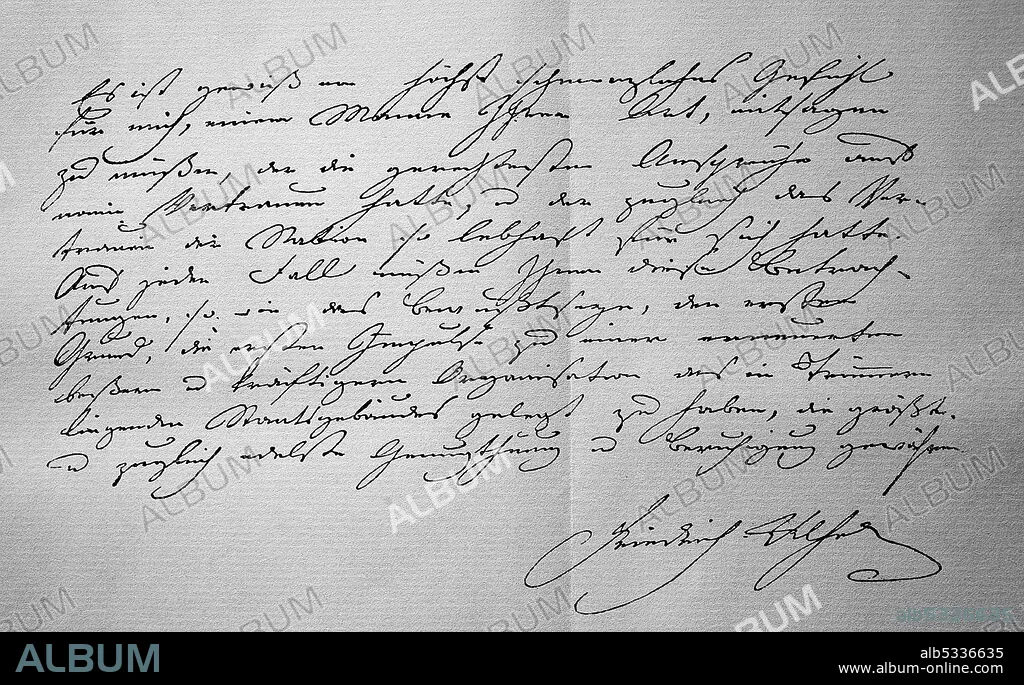 Es ist gewiß ein höchst schmerzliches Gefühl
für mich, einem Manne Ihrer Art, entsagen
zu müßen, der die gerechtesten Ansprüche auf
mein Vertrauen hatte, u der zugleich das Ver-
trauen der Nation so lebhaft für sich hatte.
Auf jeden Fall müßen Ihnen diese Betrach-
tungen, so wie das Bewußtseyn, den ersten
Grund, die ersten Impulse zu einer erneuerten
beßern u kräftigern Organisation des in Trümmern
liegenden Staatsgebäudes gelegt zu haben, die größte
u zugleich edelste Genugthuung u Beruhigung gewähren.
Friedrich Wilhelm
ALBUM
alb5336635
www.album-online.com